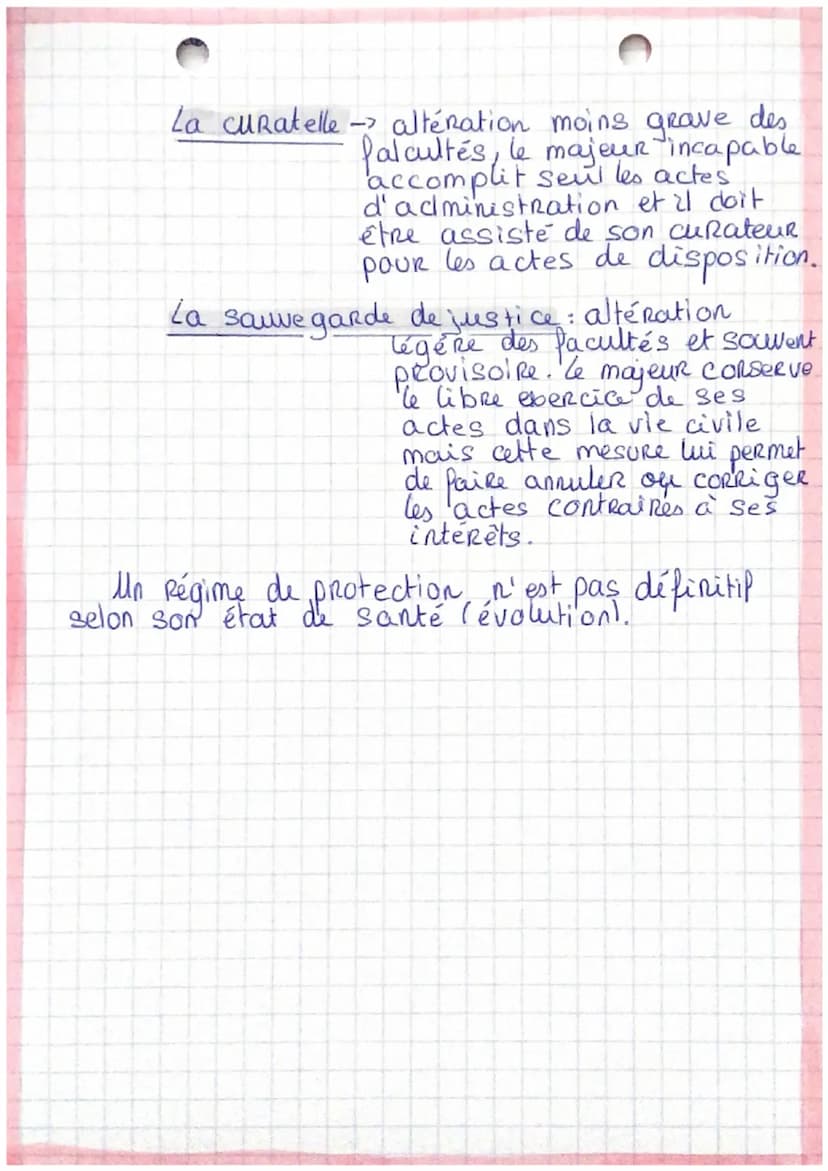 La curatelle -> altération moins grave des
falcultés, le majeur incapable
accomplit seul les actes
d'administration et il doit
être assisté de son curateur
pour les actes de disposition.
La sauvegarde de justice : altération
légère des facultés et souvent
provisoire. Le majeur conserve
le libre exercice de ses
actes dans la vie civile
mais cette mesure lui permet
de faire annuler ou corriger
les actes contraires à ses
intérêts.
Un régime de protection n'est pas définitif
selon son état de santé (évolution).